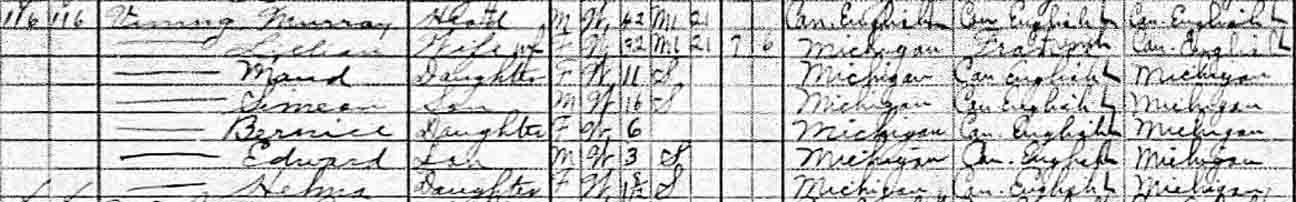 116 116 Vining Murray Head M W 42 M1 21 Can. English Can. English Can. English
Lillian Wife F W 32 M1 21 7 6 Michigan Can. English
Maud Daughter F W 11 S Michigan Can. English Michigan
Simeon Son M W 16 S Michigan Can. English Michigan
Bernice Daughter F W 6 Michigan Can. English Michigan
Edward Son M W 3 S Michigan Can. English Michigan
Daughter F W S Michigan Can. English Michigan